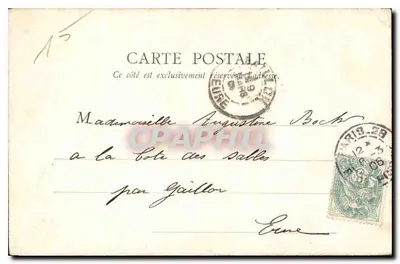 15
CARTE POSTALE
Ce côté est exclusivement réservé à l'adresse.
EURE
PARIS-28
Mademoiselle Augustine Bock
CPAphil
a la Cote des Sables
par Gaillon
Eure